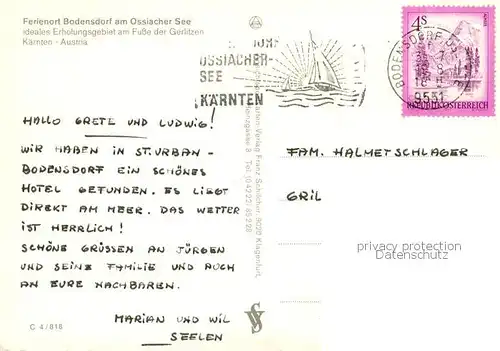 Ferienort Bodensdorf am Ossiacher See
ideales Erholungsgebiet am Fuße der Gerlitzen
Kärnten - Austria
OSSIACHER-
SEE
KÄRNTEN
4 S
REPUBLIK ÖSTERREICH
BODENSDORF
9551
HALLO GRETE UND LUDWIG!
WIR HABEN IN ST. URBAN-
BODENSDORF EIN SCHÖNES
HOTEL GEFUNDEN. ES LIEGT
DIREKT AM MEER. DAS WETTER
IST HERRLICH!
SCHÖNE GRÜSSEN AN JÜRGEN
UND SEINE FAMILIE UND AUCH
AN EURE NACHBAREN.
MARIAN UND WIL
SEELEN
C 4/816
Verlag Franz Schilcher, 9020 Klagenfurt,
FAM. HALMETSCHLAGER
GRIL
privacy protection
Datenschutz